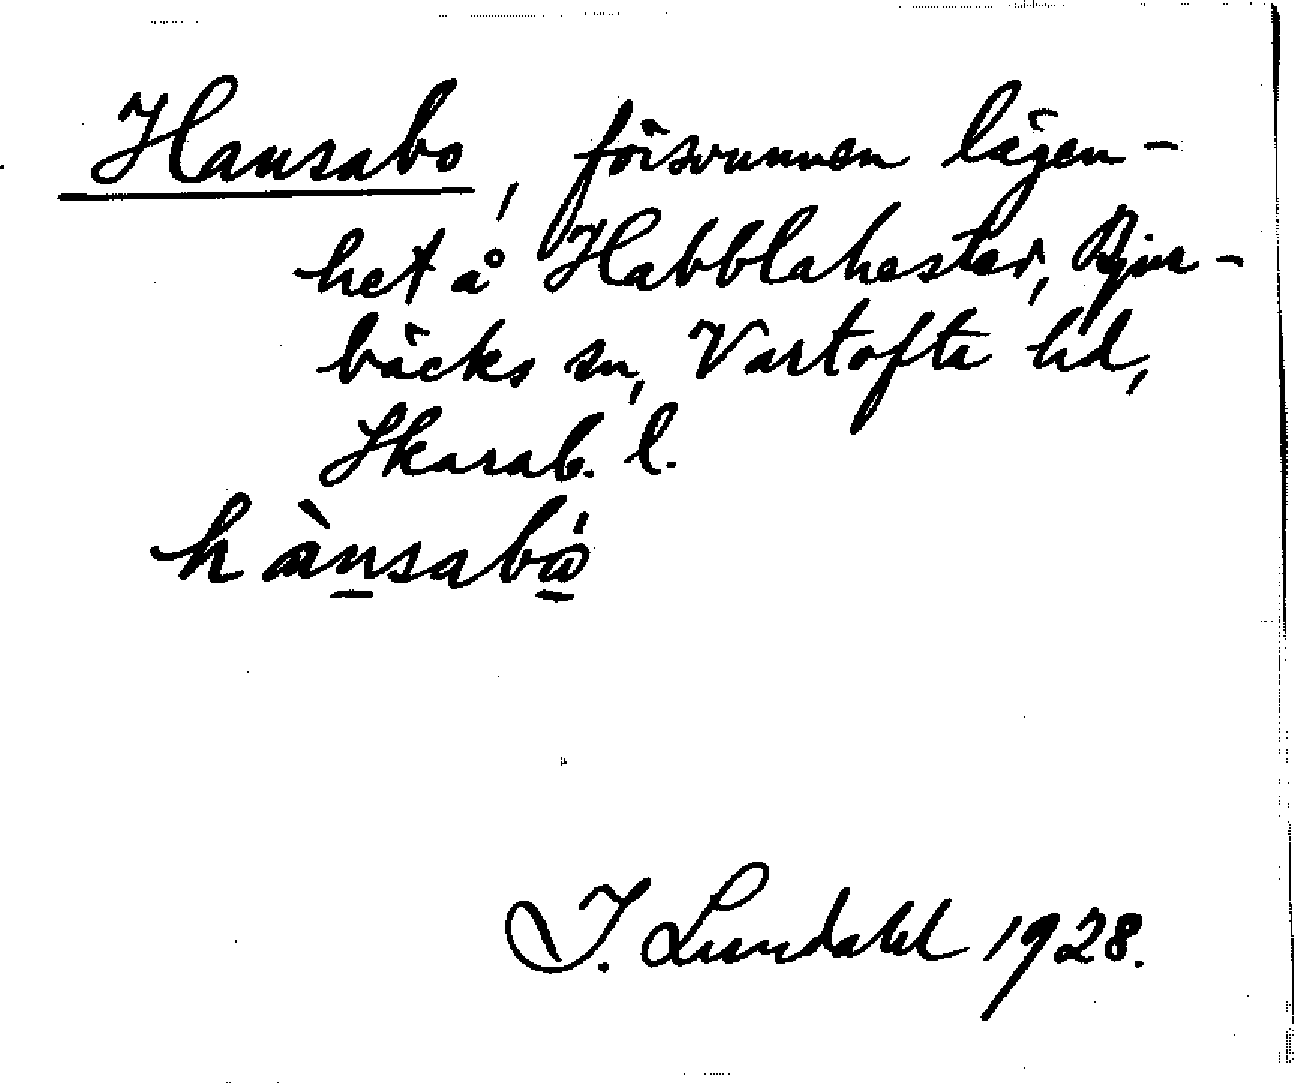 Hansabo, försvunnen lägen-
het å Habblahester, Bjur-
bäcks sn, Vartofta hd,
Skarab. l.
hànsabó
I. Lundahl 1928.